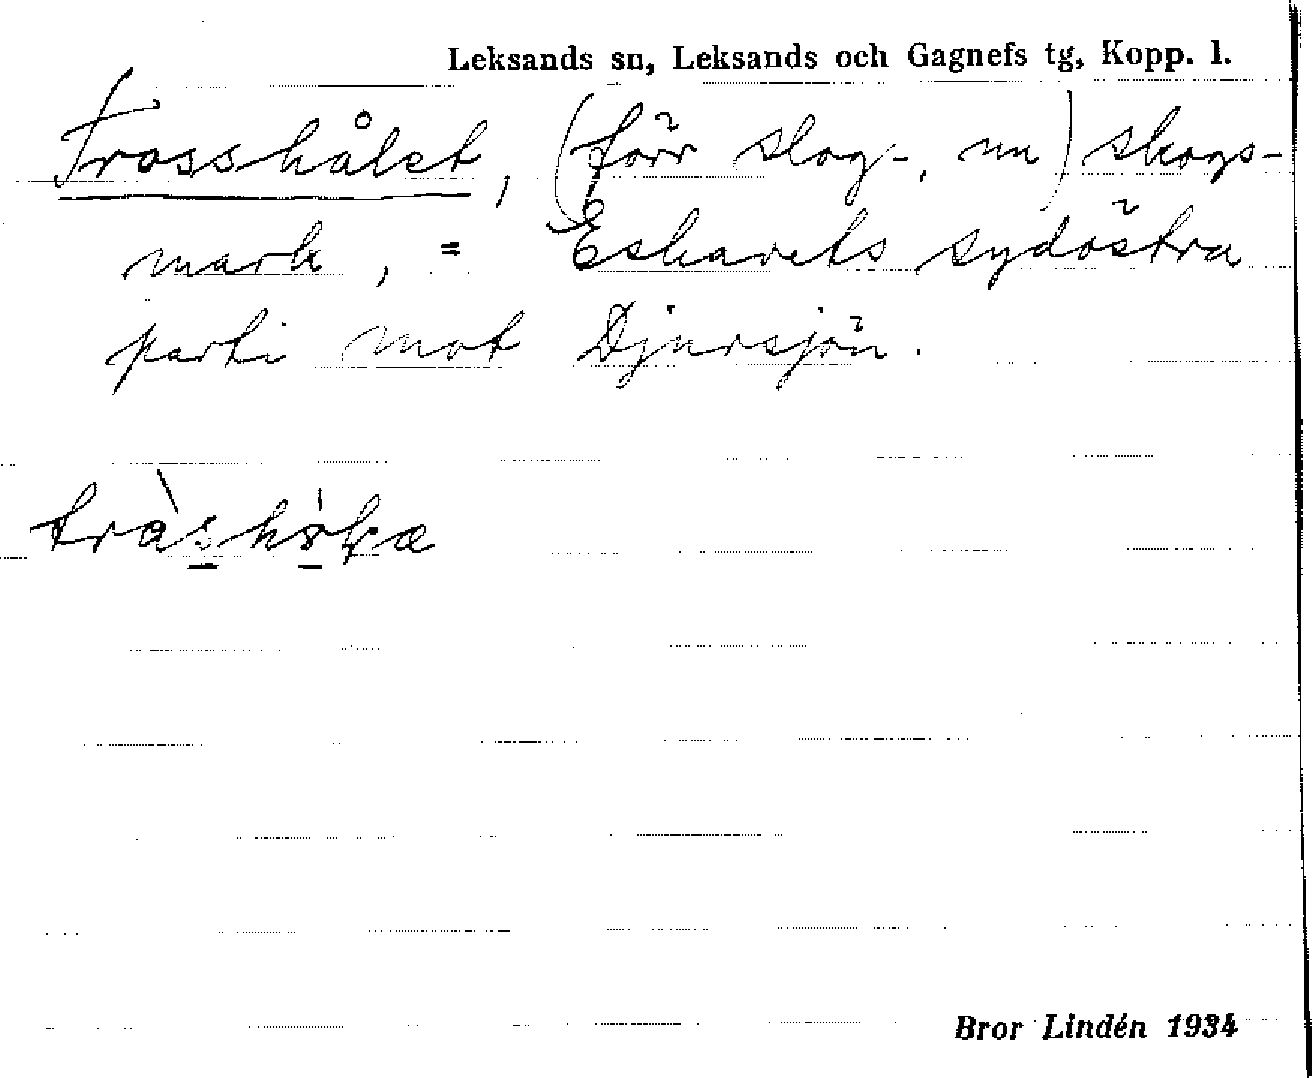 Leksands sn, Leksands och Gagnefs tg, Kopp. l.
Trosshålet, (förr slog-, nu) skogs-
mark, = Eskarets sydöstra
parti mot Djursjön.
Bror Lindén 1934